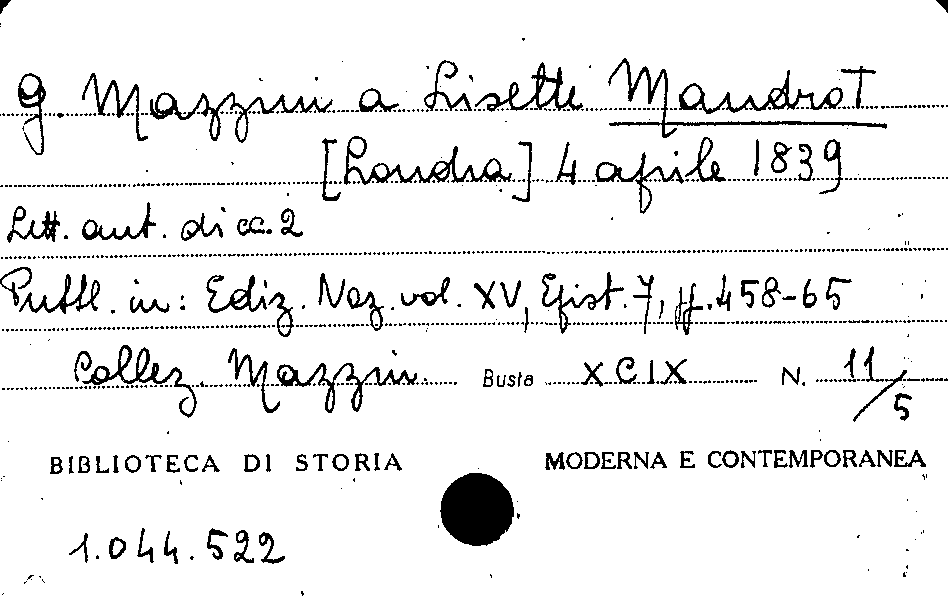 G. Mazzini a Lisette Mandrot
[Londra] 4 aprile 1839
Lett. aut. di cc. 2
Pubbl. in: Ediz. Naz. vol. XV, Epist. 7, pp. 458-65
Collez. Mazzini. Busta XCIX N. 11/5
BIBLIOTECA DI STORIA MODERNA E CONTEMPORANEA
1.044.522